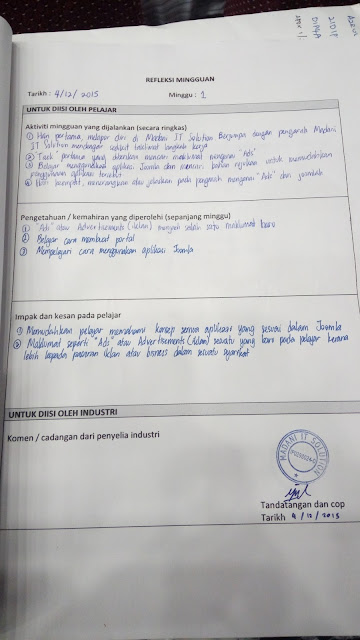 REFLEKSI MINGGUAN
Tarikh : 4/12/2015 Minggu : 1
UNTUK DIISI OLEH PELAJAR
Aktiviti mingguan yang dijalankan (secara ringkas)
① Hari pertama, melapor diri di Madani IT Solution. Berjumpa dengan pengarah Madani
IT Solution mendengar sedikit taklimat tempat kerja
② Task pertama yang diberikan mencari maklumat mengenai "Ads"
③ Belajar menggunakan aplikasi Joomla dan mencari bahan rujukan untuk memudahkan
penggunaan aplikasi tersebut
④ Hari keempat, menerangkan atau jelaskan pada pengarah mengenai "Ads" dan Joomla
Pengetahuan / kemahiran yang diperolehi (sepanjang minggu)
① "Ads" atau Advertisements (iklan) menjadi salah satu maklumat baru
② Belajar cara membuat portal
③ Mempelajari cara menggunakan aplikasi Joomla
Impak dan kesan pada pelajar
① Memudahkan pelajar memahami konsep semua aplikasi yang sesuai dalam Joomla
② Maklumat seperti "Ads" atau Advertisements (iklan) sesuatu yang baru pada pelajar kerana
lebih kepada pasaran iklan atau bisnes dalam sesuatu syarikat
UNTUK DIISI OLEH INDUSTRI
Komen / cadangan dari penyelia industri
MADANI IT SOLUTION
Tandatangan dan cop
Tarikh 4/12/2015